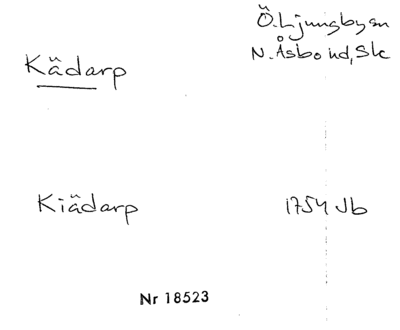 Ö. Ljungby sn
Kädarp
N. Åsbo hd, Sk
Kiädarp
1754 Jb
Nr 18523